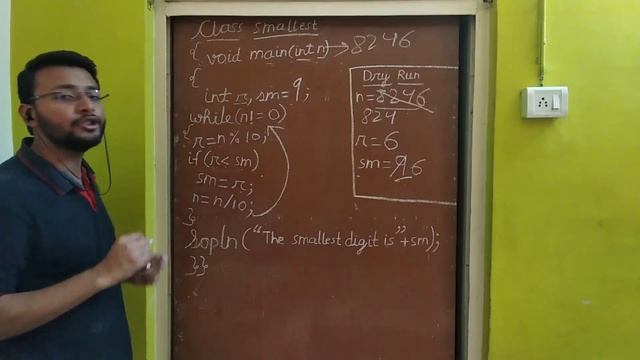 Class smallest
{ void main(int n) → 8246
{
int r, sm = 9;
while(n! = 0)
{ r = n % 10;
if (r < sm)
sm = r;
n = n/10;
}
Sopln ("The smallest digit is" + sm);
}}
Dry Run
n = 8246
824
r = 6
sm = 9 6